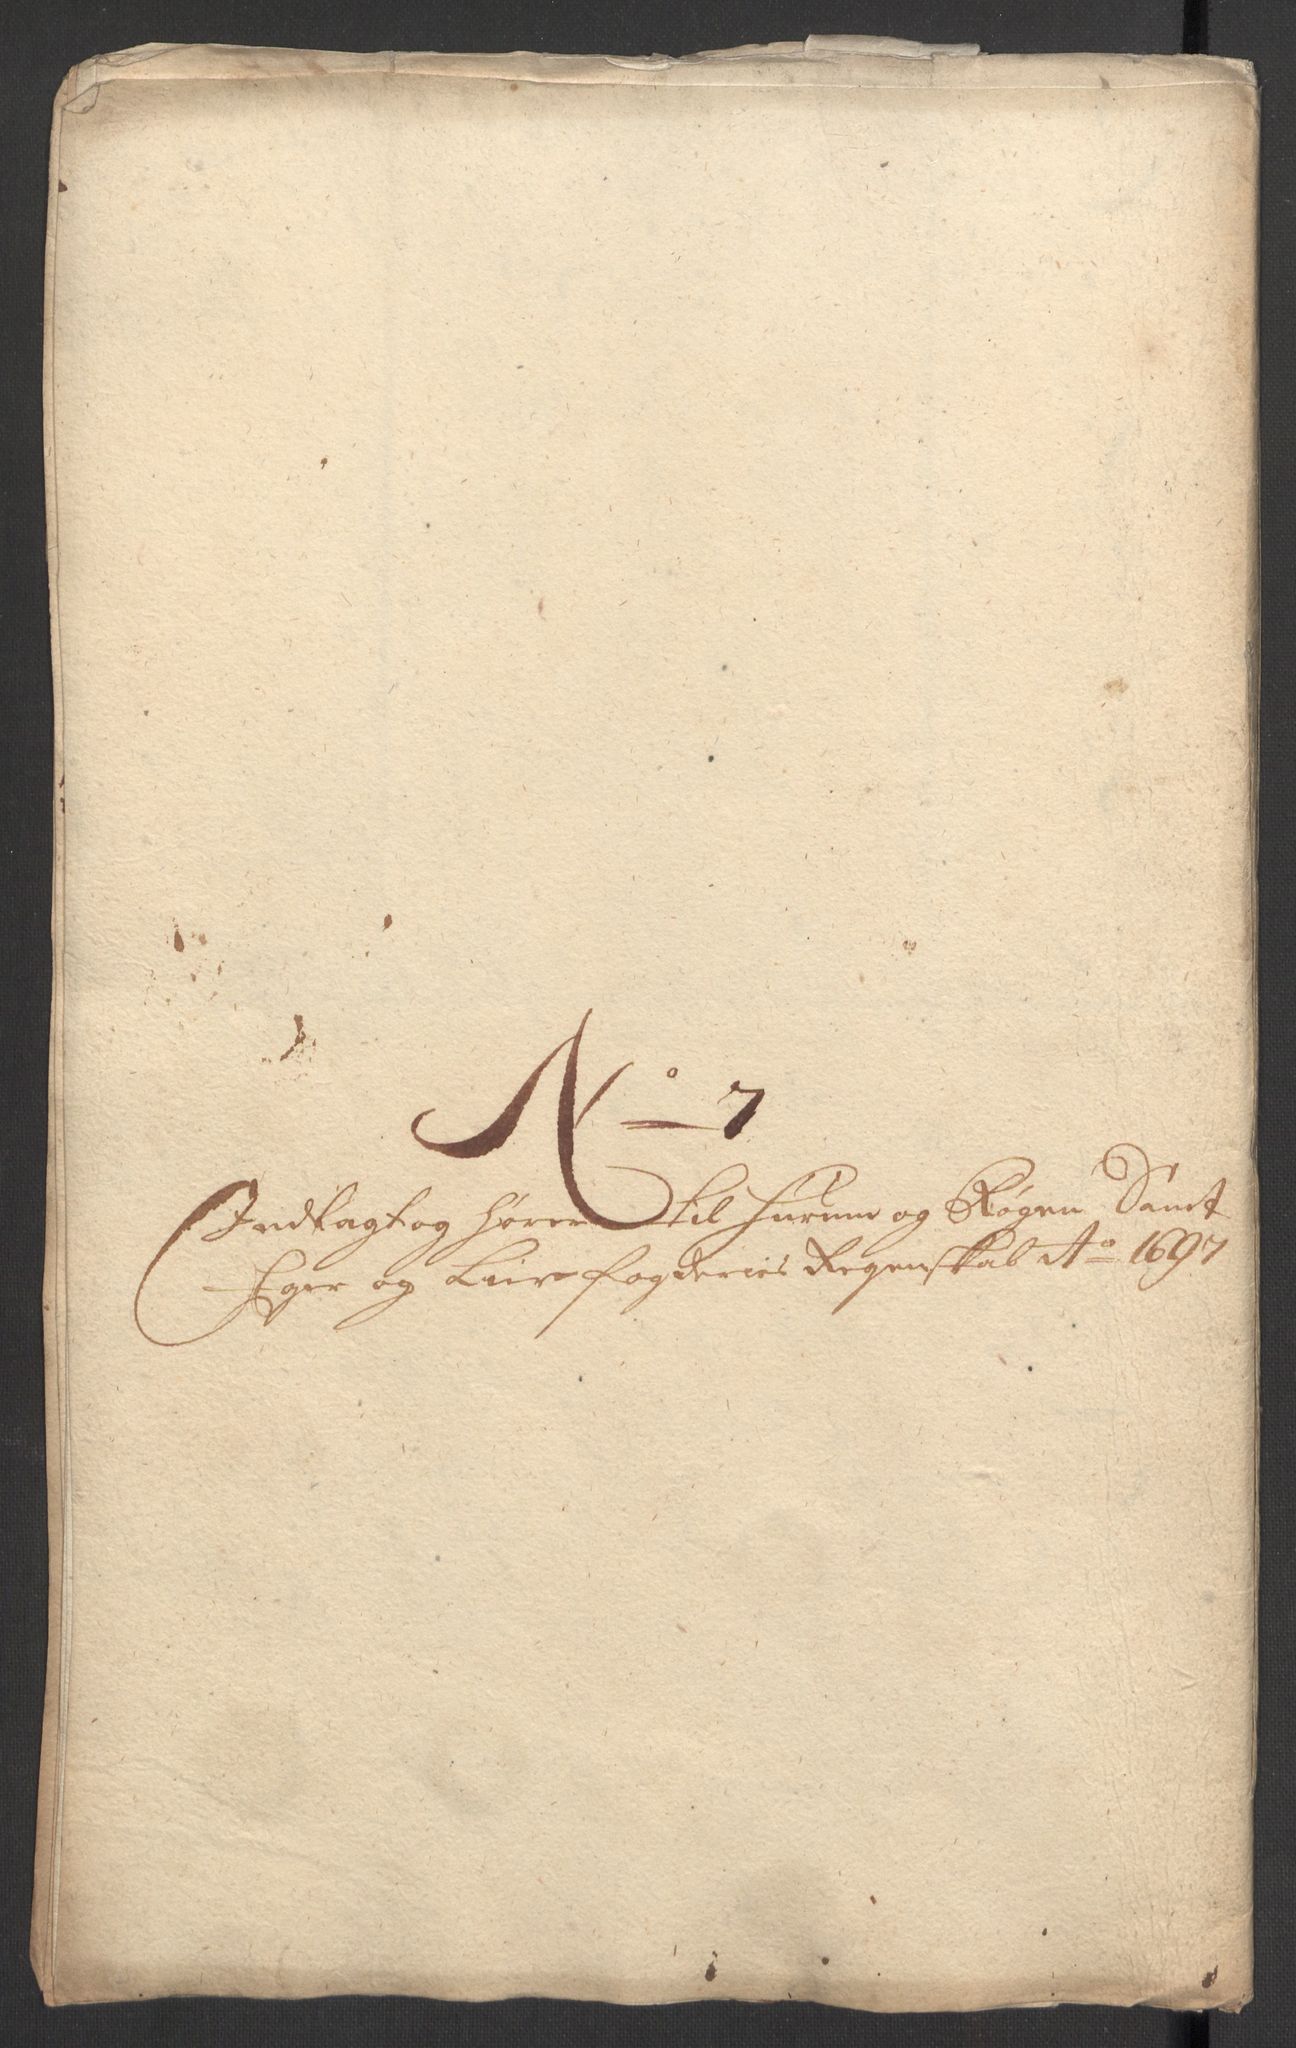 No 7
Indlagt og hører til Hurum og Røgen Samt
Eger og Lier fogderies Regenskab Ao 1697